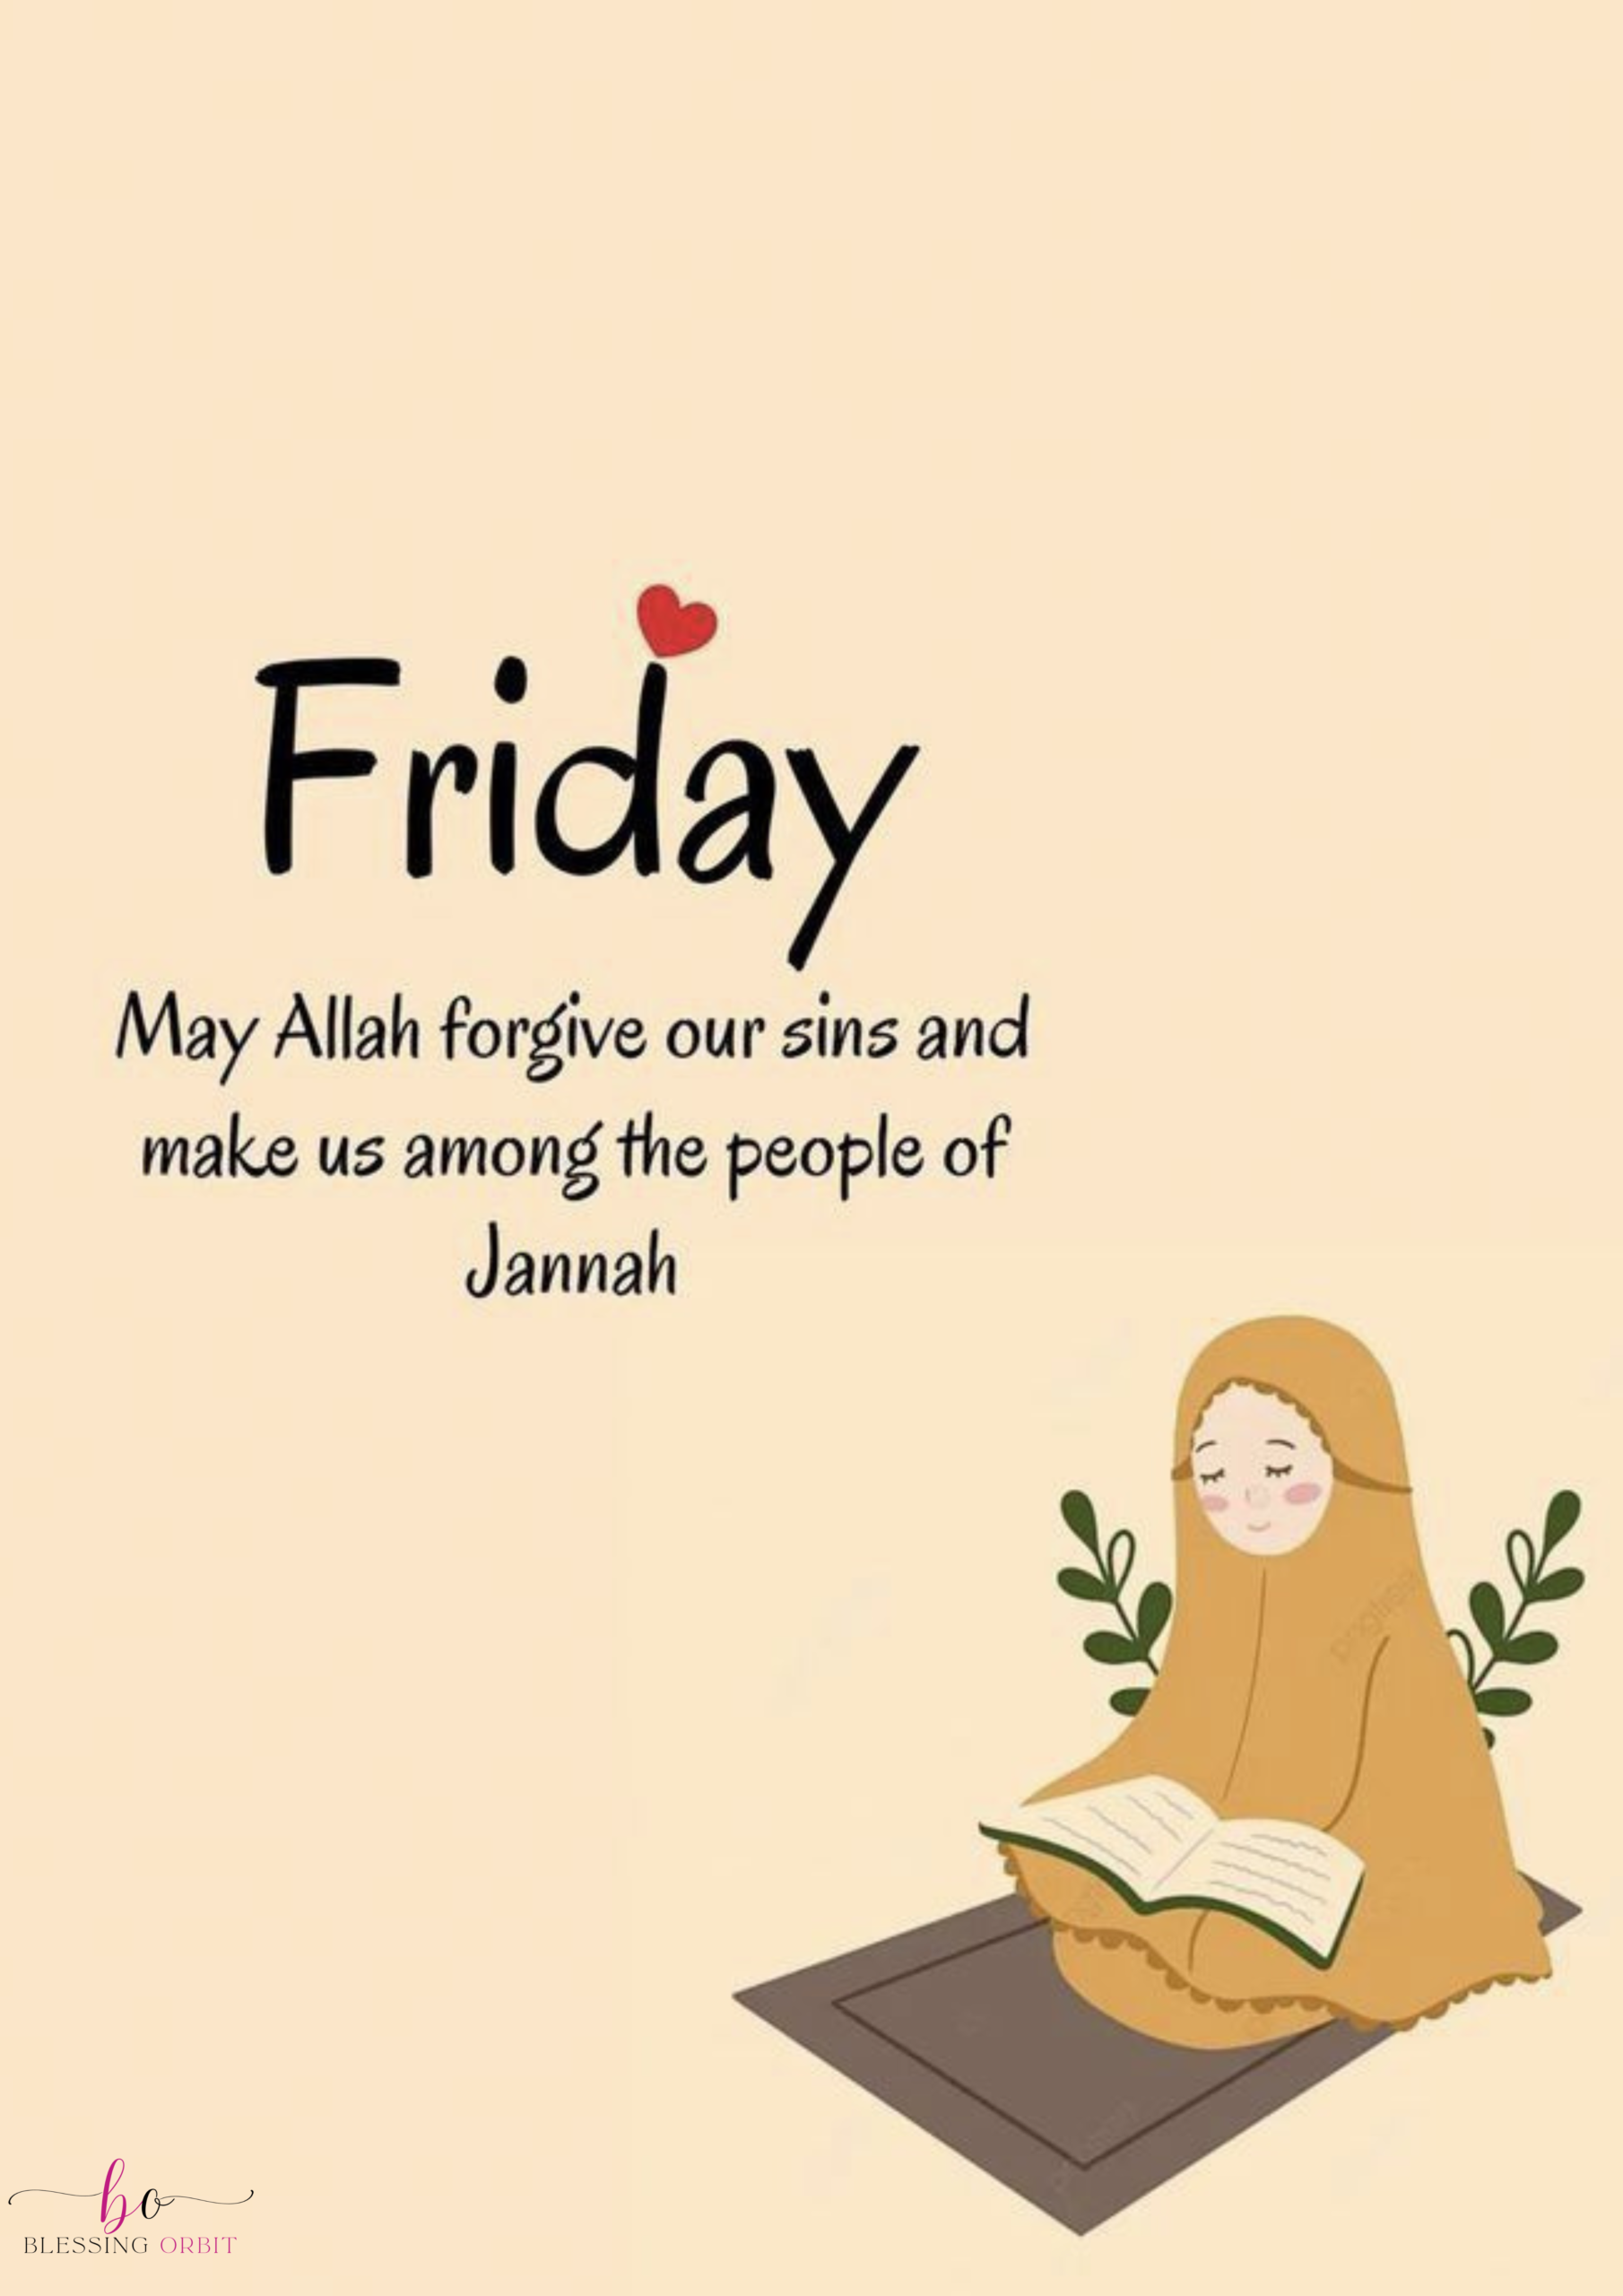 Friday
May Allah forgive our sins and
make us among the people of
Jannah
pngtree
bo
BLESSING ORBIT